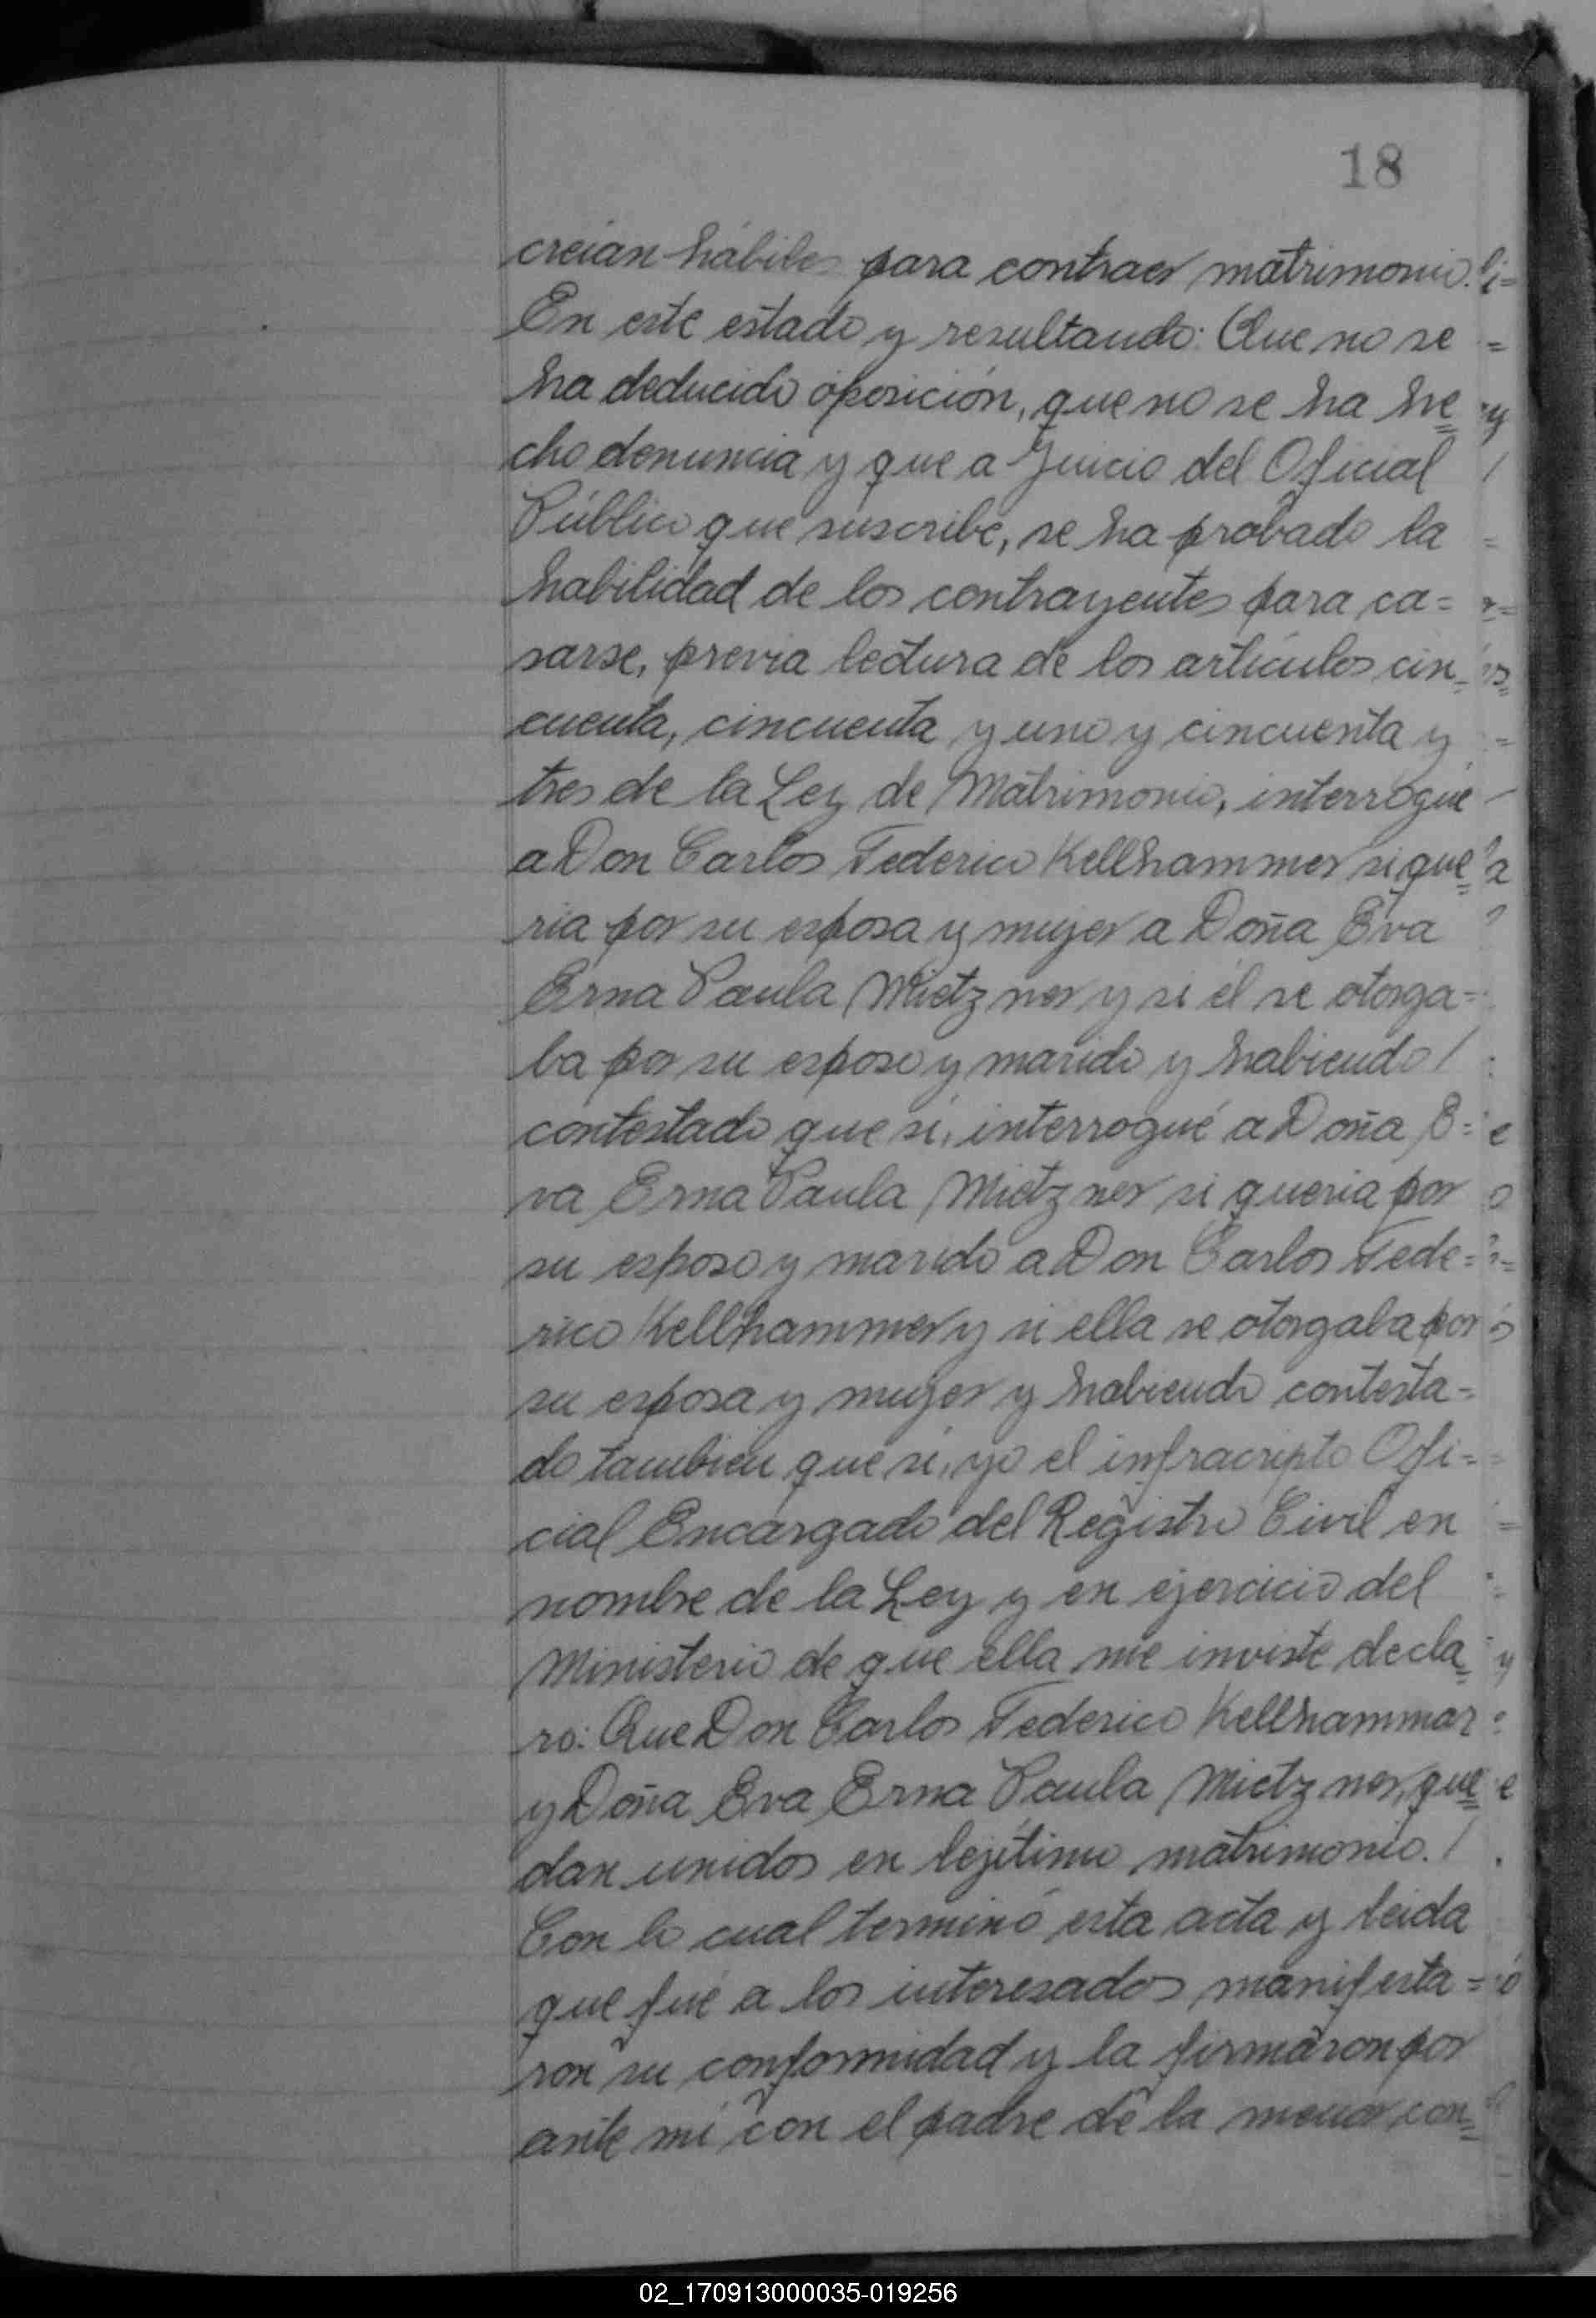 18
creían hábiles para contraer matrimonio.
En este estado y resultando: Que no se
ha deducido oposición, que no se ha he=
cho denuncia y que a Juicio del Oficial
Público que suscribe, se ha probado la
habilidad de los contrayentes para ca=
sarse, previa lectura de los artículos cin=
cuenta, cincuenta y uno y cincuenta y
tres de la Ley de Matrimonio, interrogué
a Don Carlos Federico Kellhammer si que=
ría por su esposa y mujer a Doña Eva
Erna Paula Mietzner y si él se otorga=
ba por su esposo y marido y habiendo /
contestado que sí, interrogué a Doña E=
va Erna Paula Mietzner si quería por
su esposo y marido a Don Carlos Fede=
rico Kellhammer y si ella se otorgaba por
su esposa y mujer y habiendo contesta=
do también que sí, yo el infracripto Ofi=
cial Encargado del Registro Civil en
nombre de la Ley y en ejercicio del
Ministerio de que ella me inviste decla=
ro: Que Don Carlos Federico Kellhammer
y Doña Eva Erna Paula Mietzner, que=
dan unidos en lejítimo matrimonio. /
Con lo cual terminó esta acta y leída
que fué a los interesados manifesta=
ron su conformidad y la firmaron por
ante mí con el padre de la menor con=
02_170913000035-019256